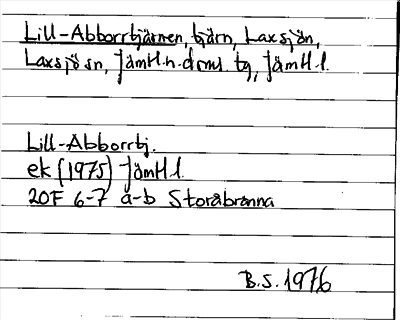 Lill-Abborrtjärnen, tjärn, Laxsjön,
Laxsjö sn, Jämtl.n.dms. tg, Jämtl.l.
Lill-Abborrtj.
ek (1975) Jämtl.l.
20F 6-7 a-b Storåbränna
B.S. 1976